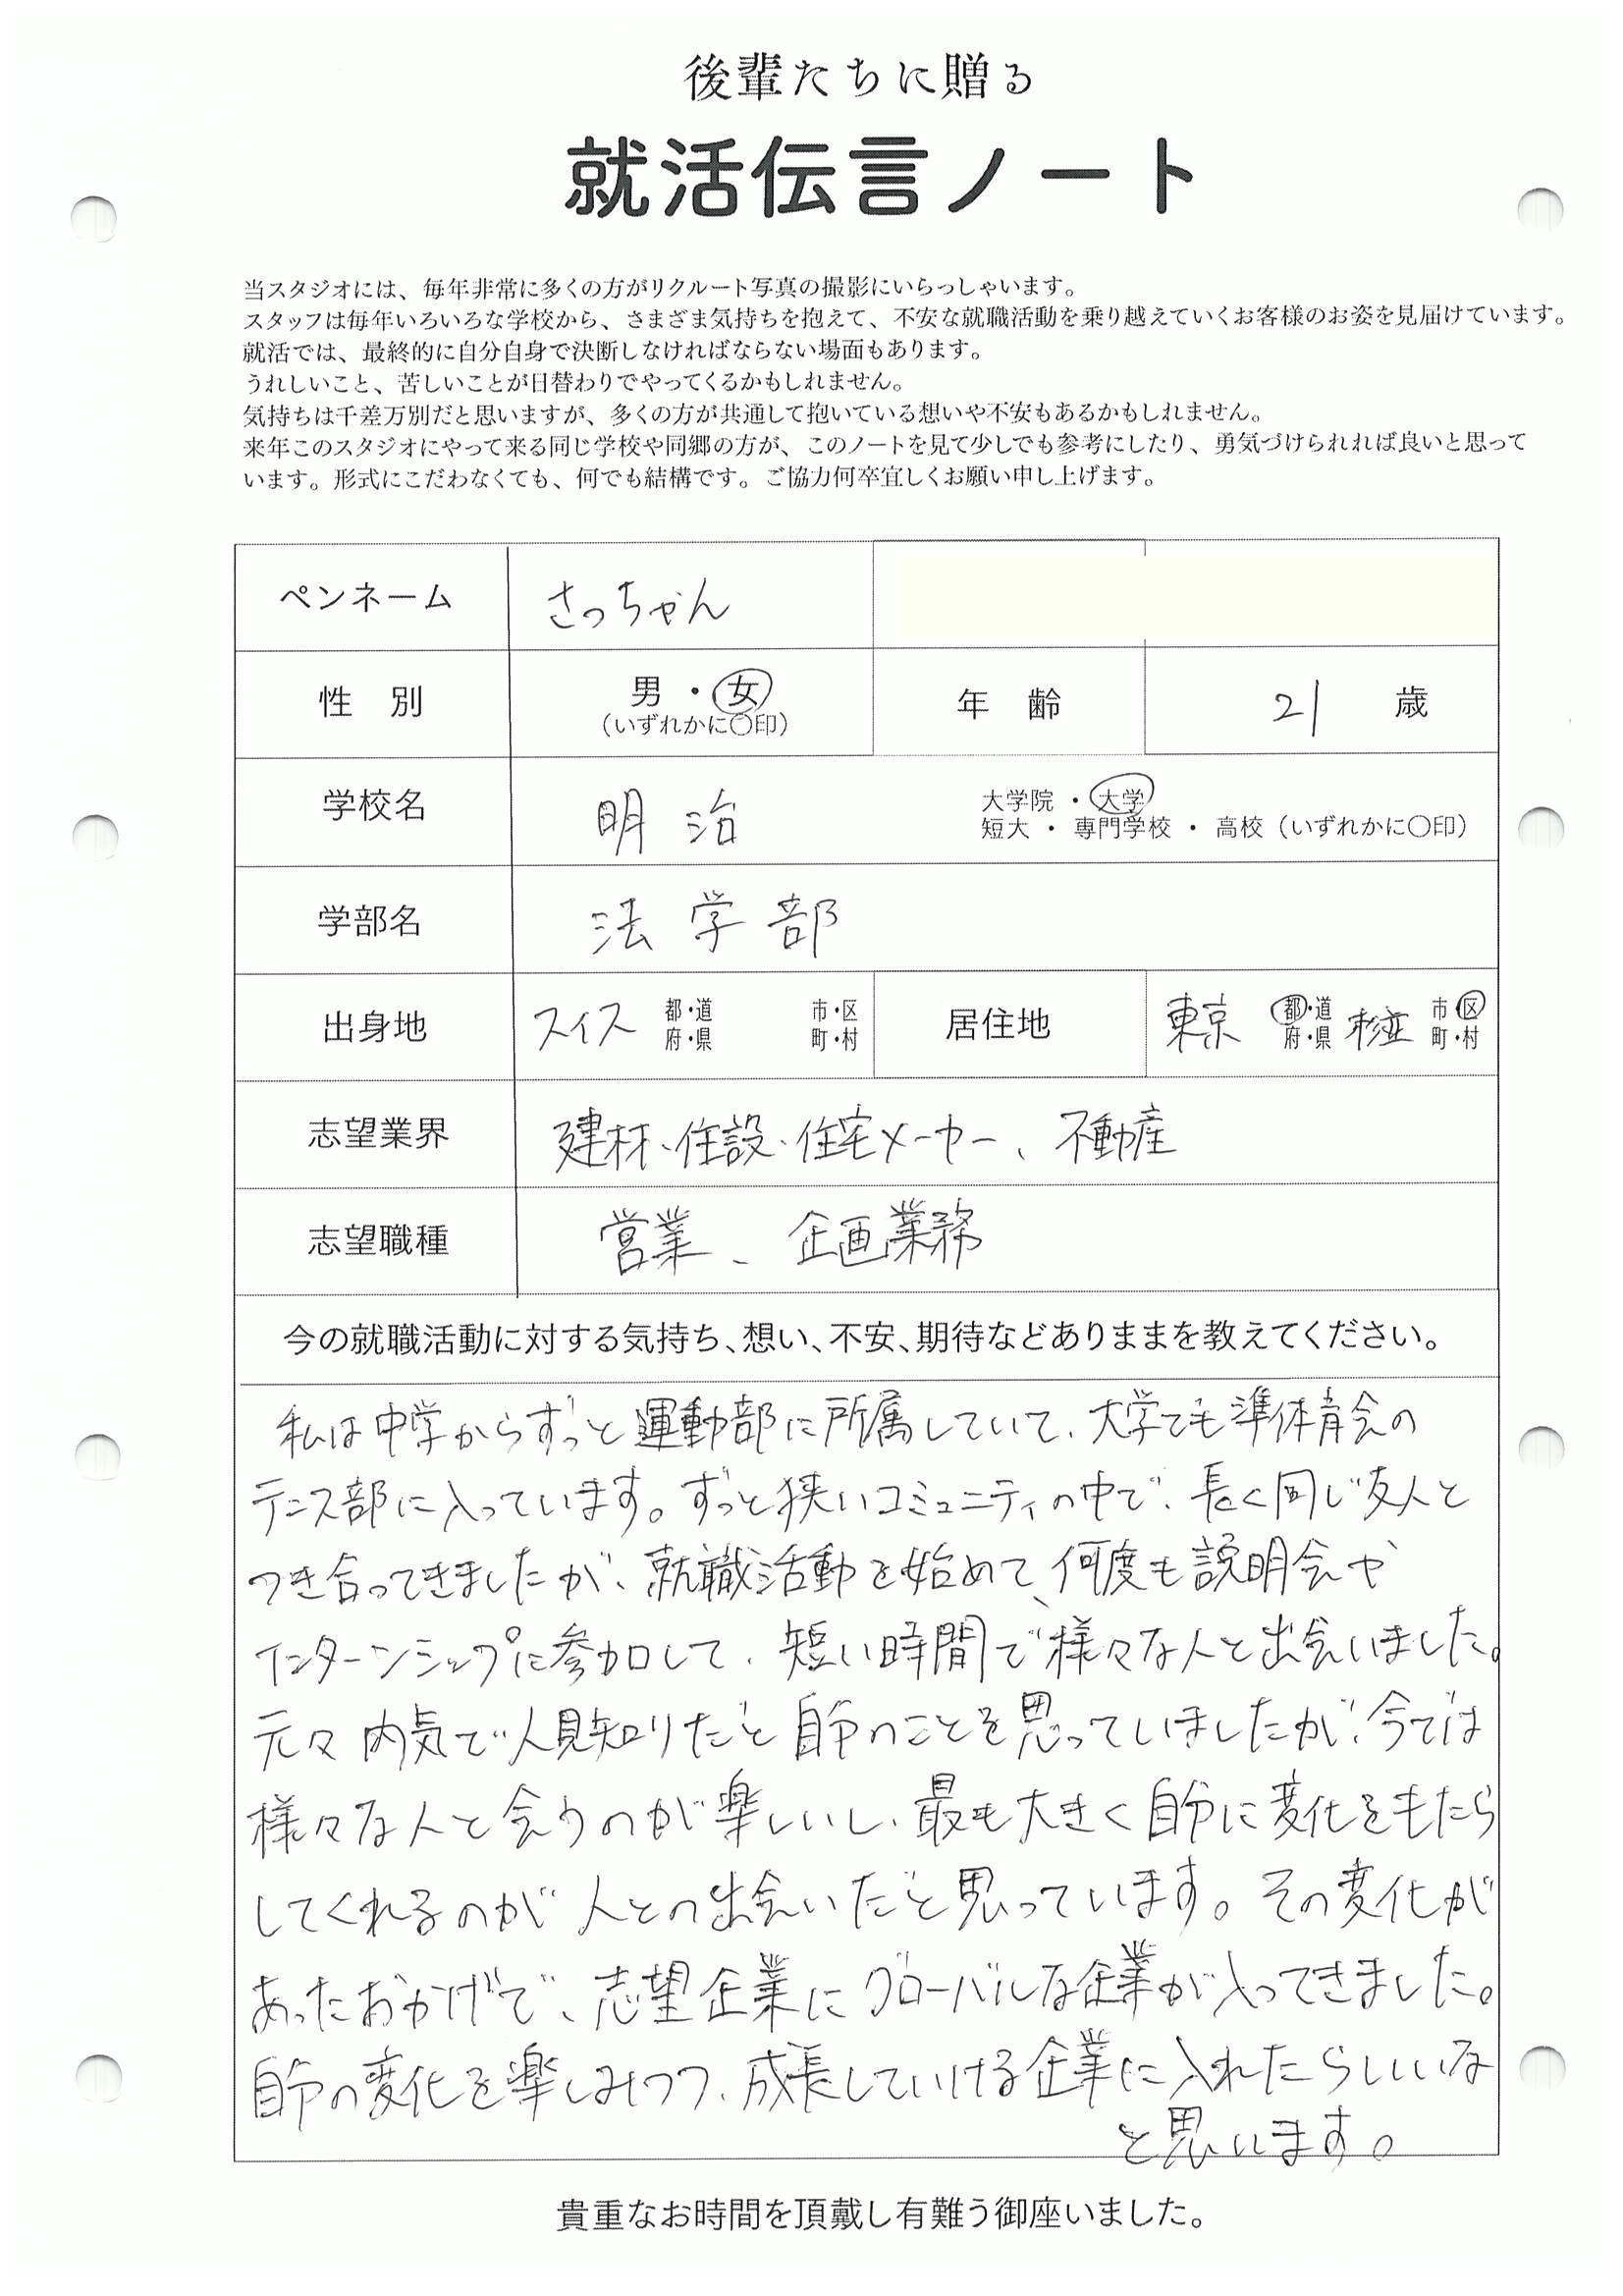 後輩たちに贈る
就活伝言ノート
当スタジオには、毎年非常に多くの方がリクルート写真の撮影にいらっしゃいます。
スタッフは毎年いろいろな学校から、さまざま気持ちを抱えて、不安な就職活動を乗り越えていくお客様のお姿を見届けています。
就活では、最終的に自分自身で決断しなければならない場面もあります。
うれしいこと、苦しいことが日替わりでやってくるかもしれません。
気持ちは千差万別だと思いますが、多くの方が共通して抱いている想いや不安もあるかもしれません。
来年このスタジオにやって来る同じ学校や同郷の方が、このノートを見て少しでも参考にしたり、勇気づけられれば良いと思って
います。形式にこだわなくても、何でも結構です。ご協力何卒宜しくお願い申し上げます。
ペンネーム さっちゃん
性 別 男・女 年 齢 21 歳
(いずれかに〇印)
学校名 明治 大学院・大学
短大・専門学校・高校(いずれかに〇印)
学部名 法学部
出身地 スイス 都・道 市・区 居住地 東京 都・道 杉並 市・区
府・県 町・村 府・県 町・村
志望業界 建材・住設・住宅メーカー、不動産
志望職種 営業、企画業務
今の就職活動に対する気持ち、想い、不安、期待などありままを教えてください。
私は中学からずっと運動部に所属していて、大学でも準体育会の
テニス部に入っています。ずっと狭いコミュニティの中で、長く同じ友人と
つき合ってきましたが、就職活動を始めて、何度も説明会や
インターンシップに参加して、短い時間で様々な人と出会いました。
元々内気で人見知りだと自分のことを思っていましたが、今では
様々な人と会うのが楽しいし、最も大きく自分に変化をもたら
してくれるのが人との出会いだと思っています。その変化が
あったおかげで、志望企業にグローバルな企業が入ってきました。
自分の変化を楽しみつつ、成長していける企業に入れたらいいな
と思います。
貴重なお時間を頂戴し有難う御座いました。